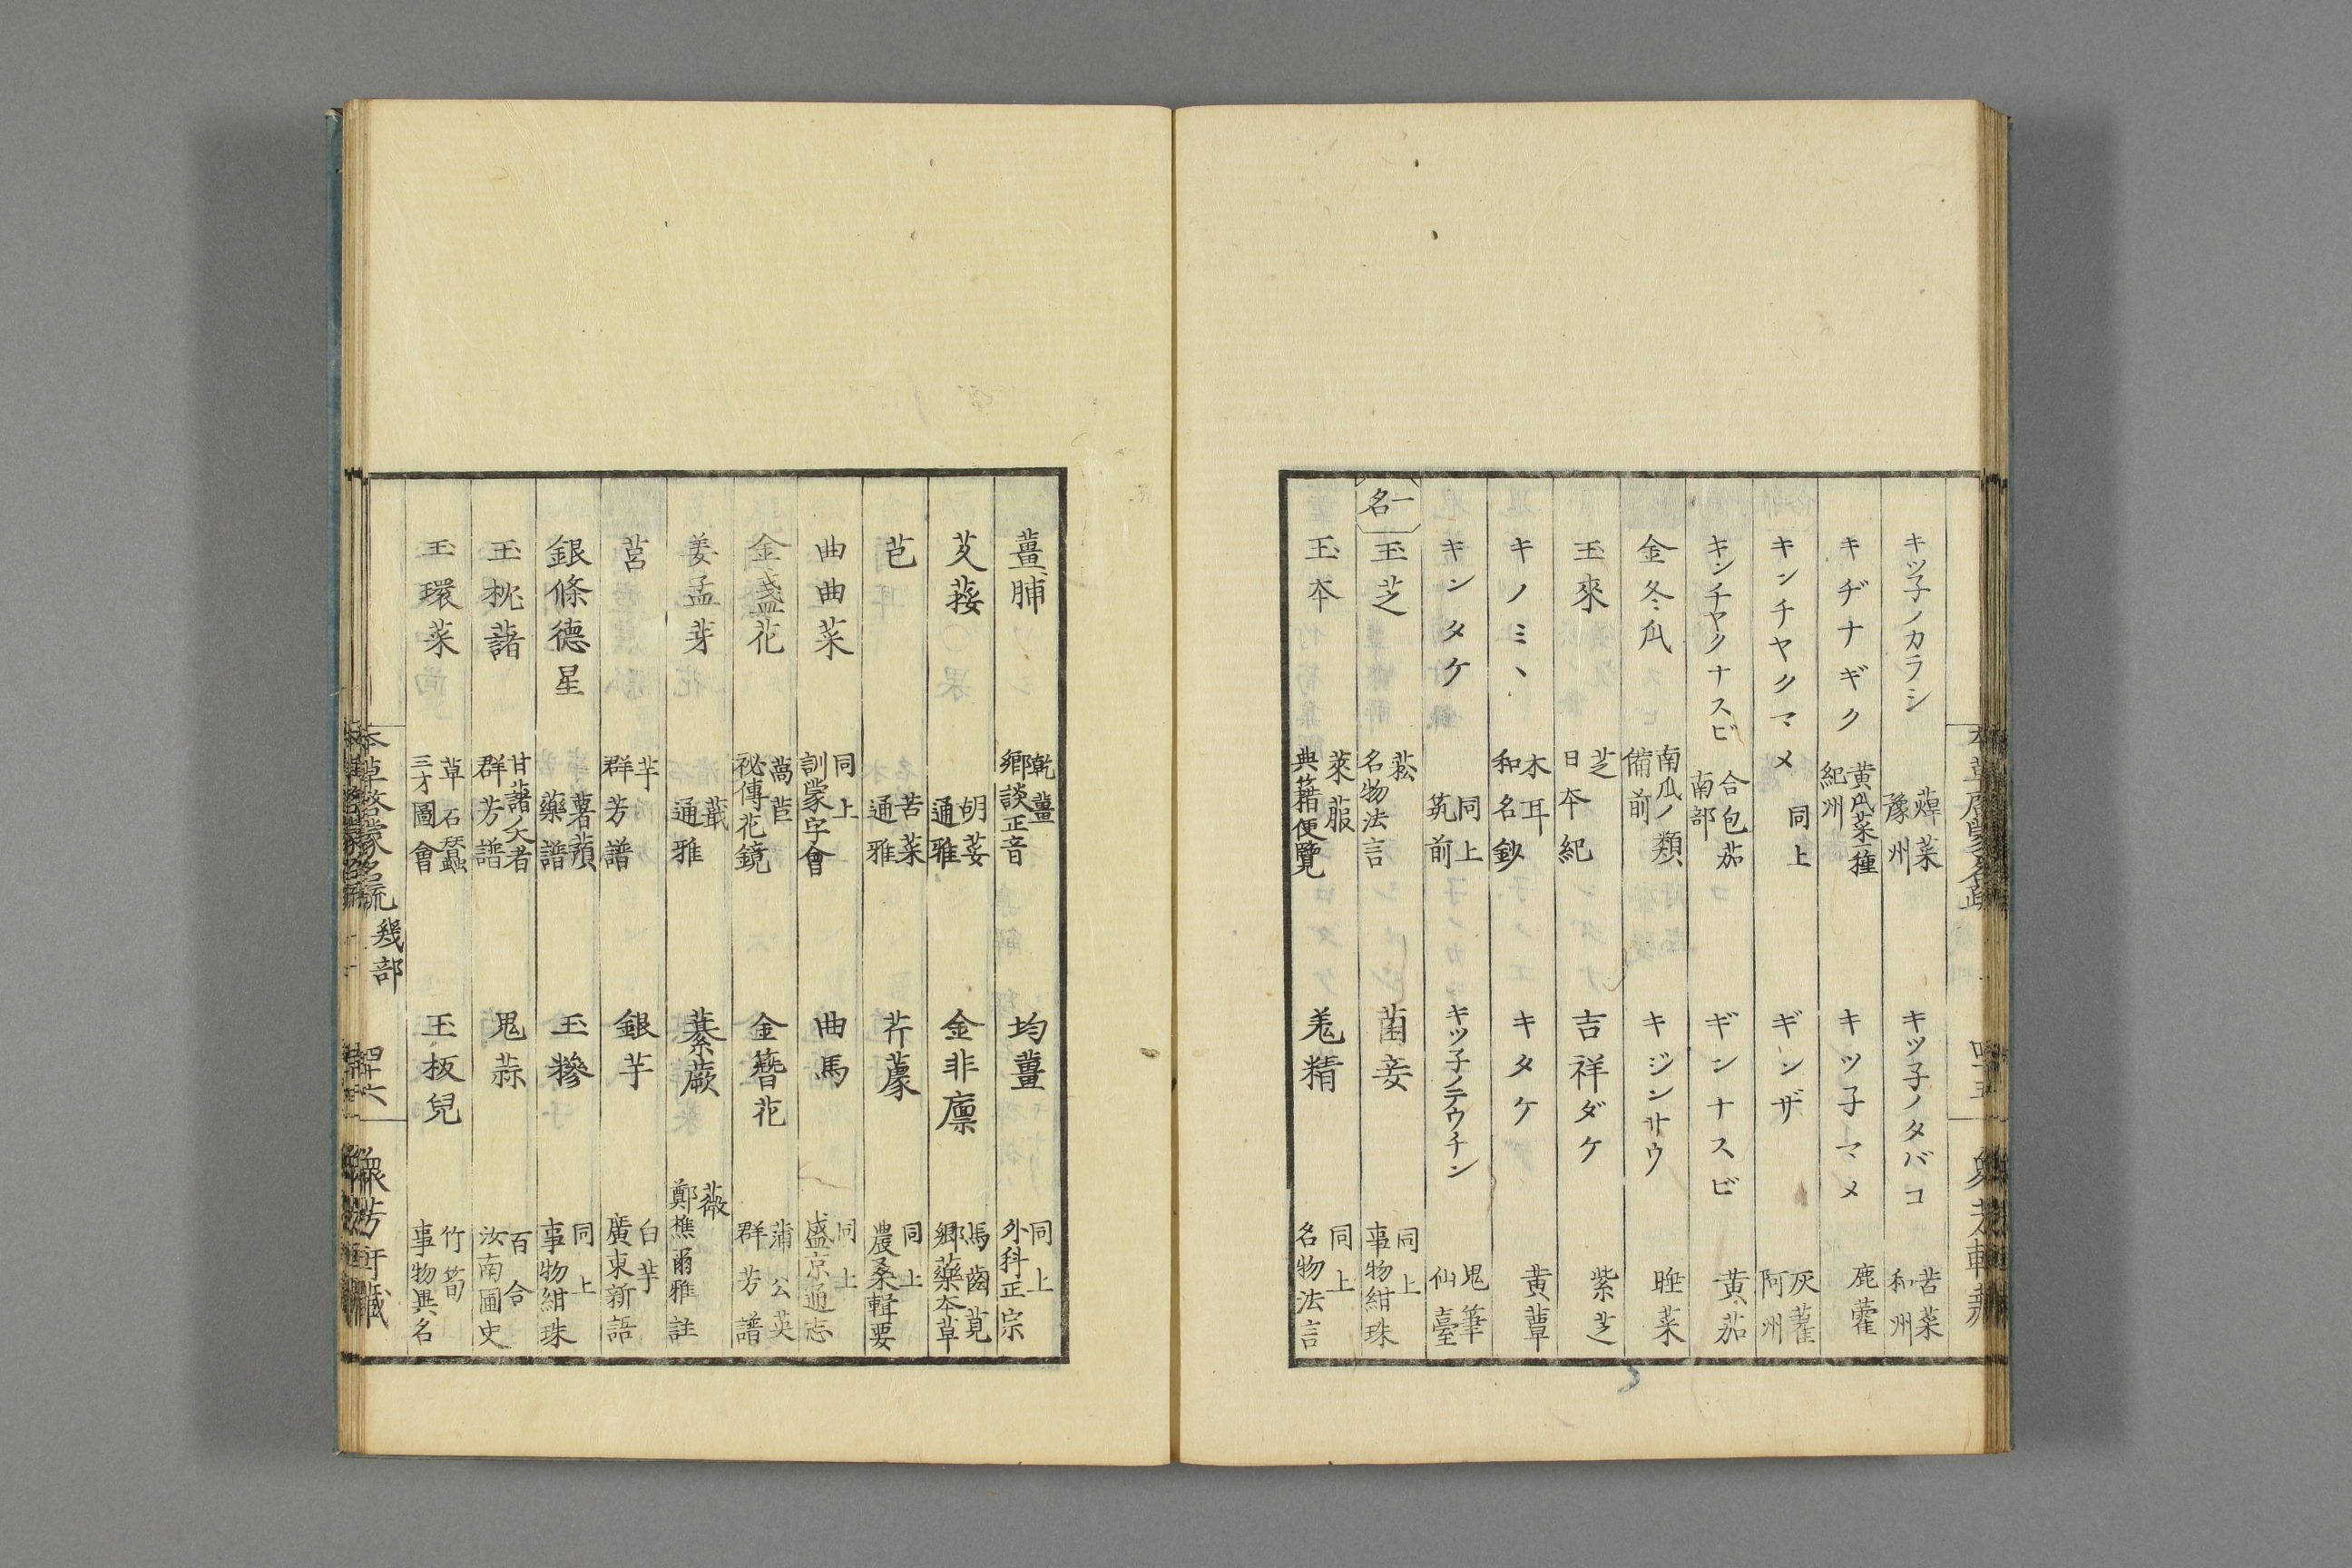 キツ子ノカラシ 蔊菜 豫州 キツ子ノタバコ 苦菜 和州
キヂナギク 黄瓜菜一種 紀州 キツ子マメ 鹿藿
キンチヤクマメ 同上 ギンザ 灰藋 阿州
キンチヤクナスビ 合包茄 南部 ギンナスビ 黄茄
金冬瓜 南瓜ノ類 備前 キジンサウ 睡菜
玉來 芝 日本紀 吉祥ダケ 紫芝
キノミヽ 木耳 和名鈔 キタケ 黄蕈
キンタケ 同上 筑前 キツ子ノテウチン 鬼筆 仙臺
一名 玉芝 菘 名物法言 菌妾 同上 事物紺珠
玉本 萊菔 典籍便覽 羗精 同上 名物法言
薑脯 乾薑 鄉談正音 均薑 同上 外科正宗
芨荽 胡荽 通雅 金非廩 馬齒莧 鄉藥本草
芑 苦菜 通雅 芥藘 同上 農桑輯要
曲曲菜 同上 訓蒙字會 曲馬 同上 盛京通志
金盞花 萵苣 祕傳花鏡 金簪花 蒲公英 群芳譜
姜孟芽 蕺 通雅 蘩蕨 薇 鄭樵爾雅註
莒 芋 群芳譜 銀芋 白芋 廣東新語
銀條德星 薯蕷 藥譜 玉糝 同上 事物紺珠
玉枕藷 甘藷ノ大者 群芳譜 鬼蒜 百合 汝南圃史
玉環菜 草石蠶 三才圖會 玉板兒 竹筍 事物異名
本草啓蒙名疏 幾部